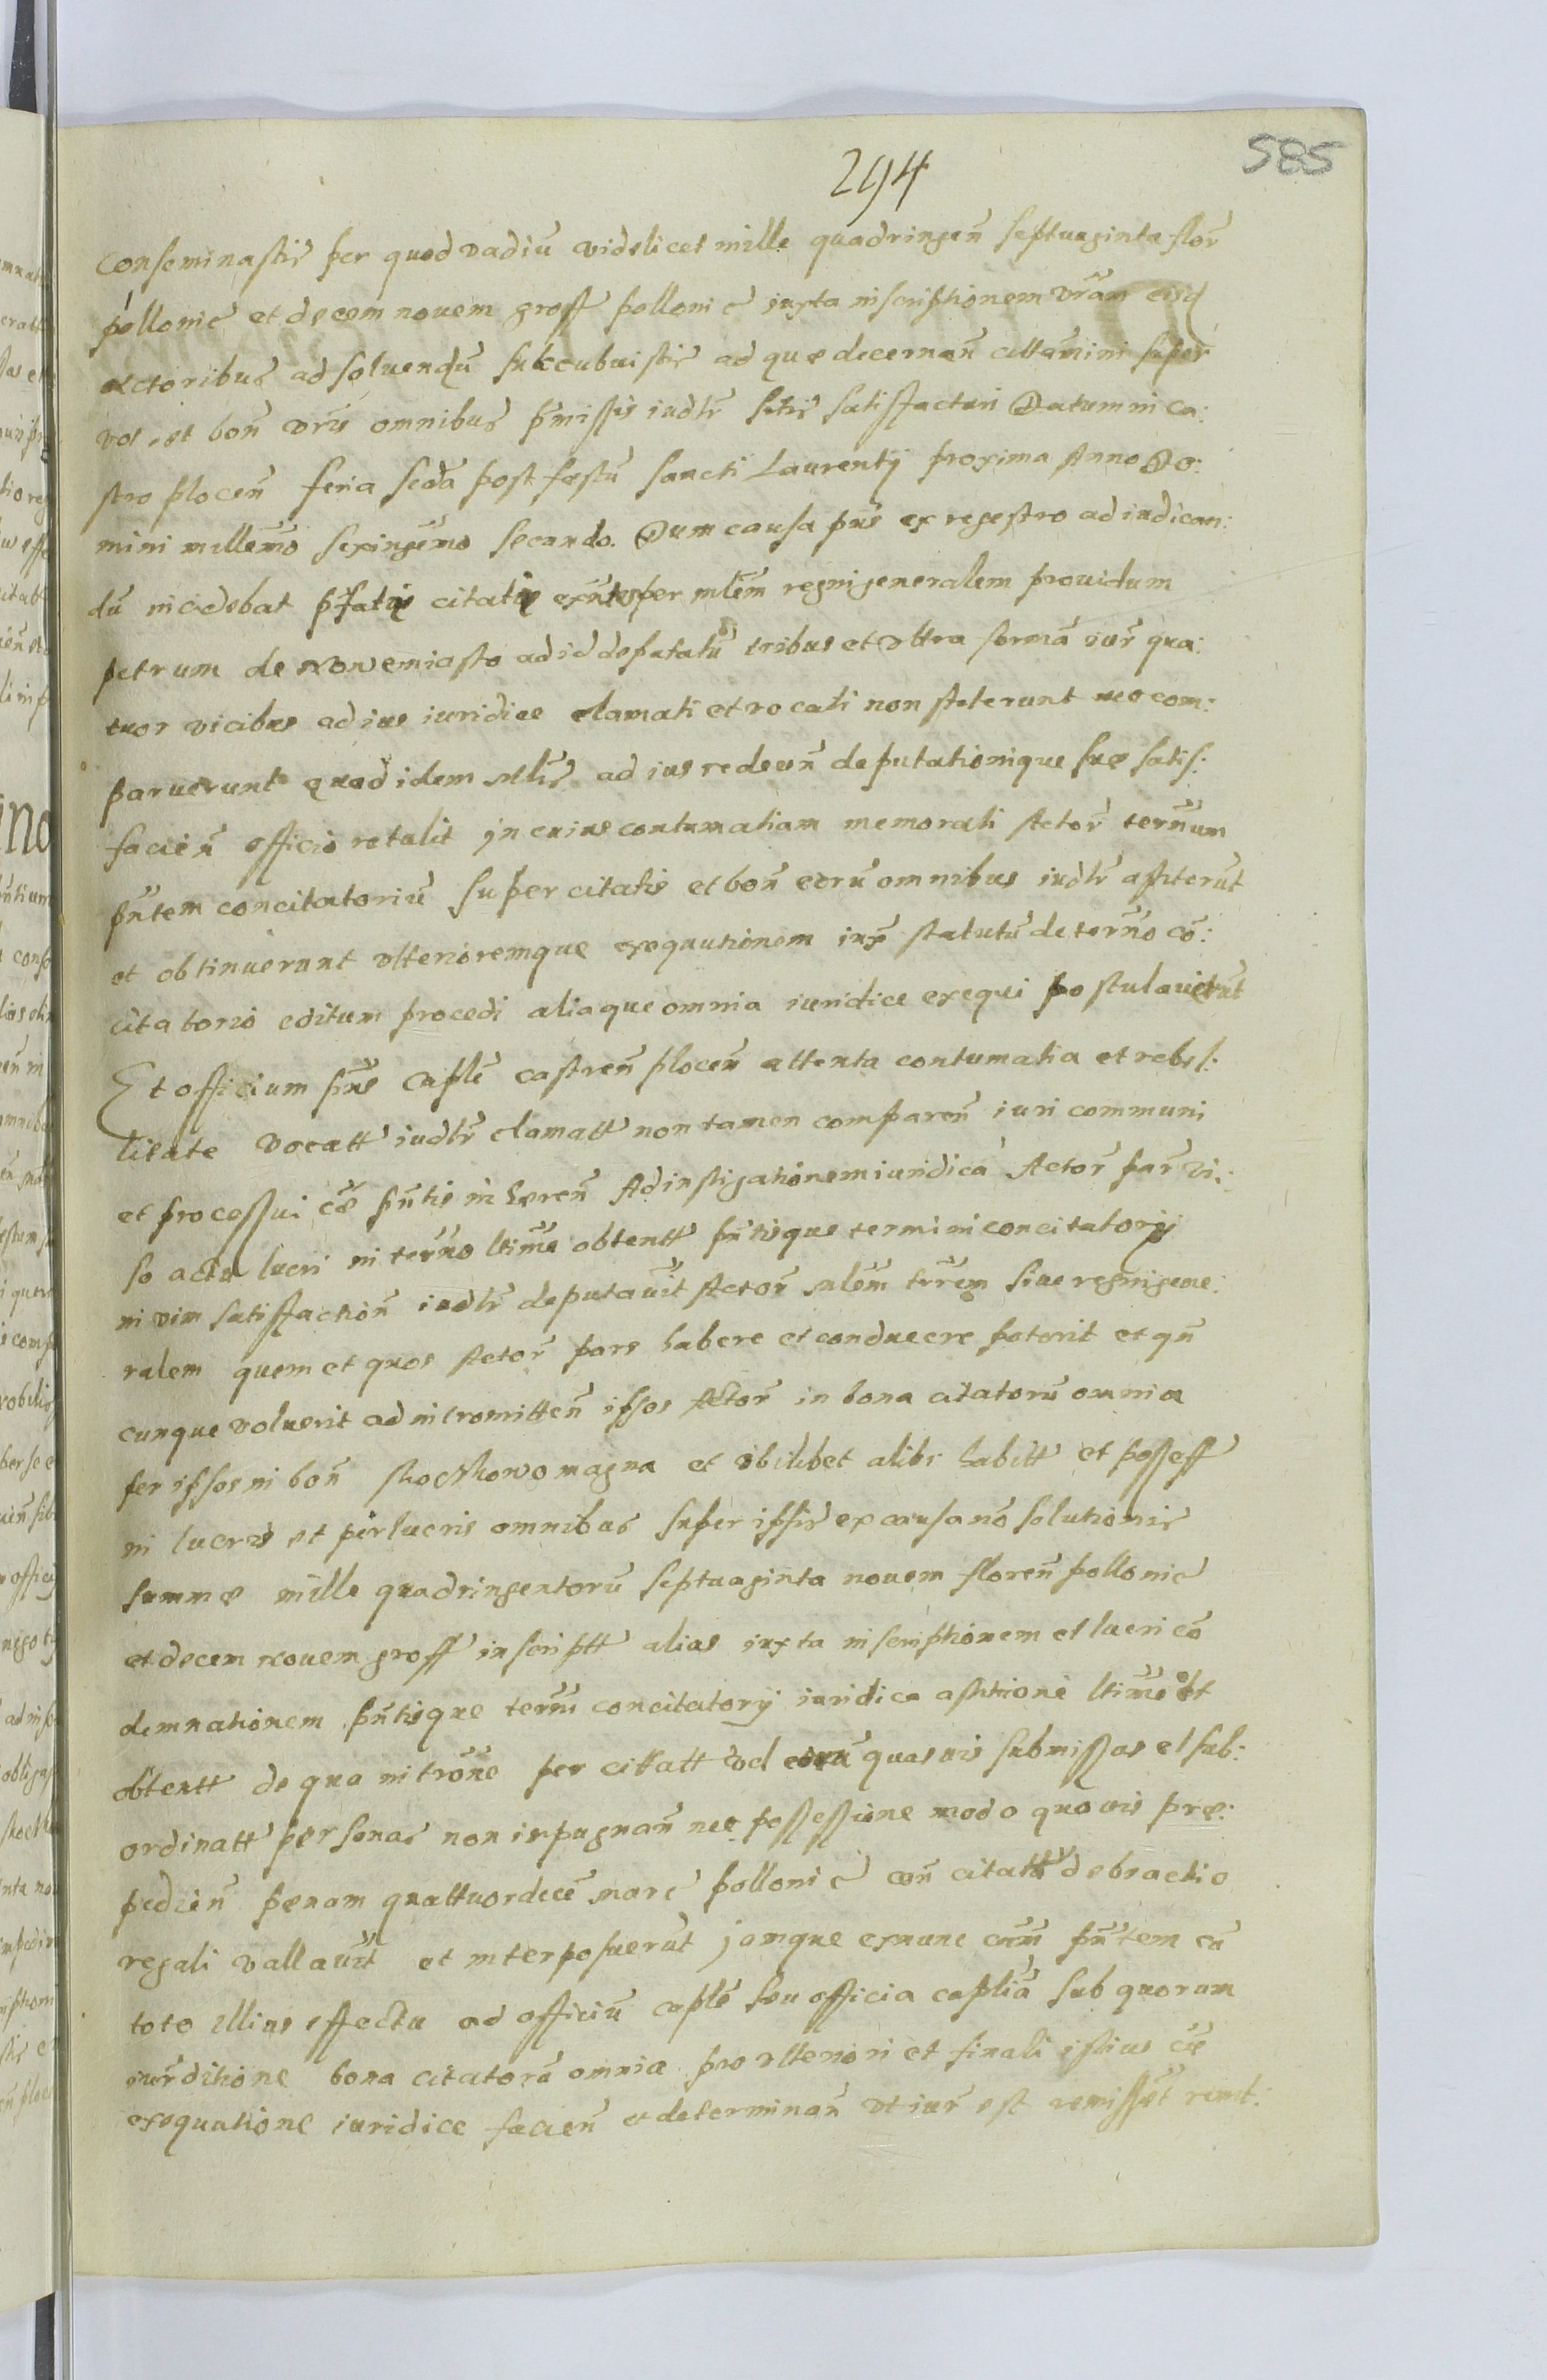 294
585
Conseminastis per quod vadiũ videlicet mille quadringeñ septuaginta flor̃
pollonic̃ et decem novem gross pollonic̃ iuxta inscriptionem vrãm eisd
Actoribus ad soluendũ succubuistis ad quæ decernañ cittamini super
vos et boñ vr̃is omnibus p̃missis iudlr̃ satisfacturi Datum in Ca:
stro plocen̄ feria scda post festũ Sancti Laurentij proxima Anno Do:
mini millemo sexingemo secundo. Dum causa pñs ex regestro ad iudican:
dũ incidebat p̃fatis citatis per mlẽm regni generalem providum
petrum de Nowemiasto ad id deputatũ tribus et vltra formã iur̃ qua:
tuor vicibus ad ius iuridice clamati et vocati non steterunt nec com:
paruerunt quod idem mlr̃is ad ius redeuñ deputationique suæ satis:
facieñ officio retulit in cuius contumatiam memorati Actor̃ terñum
pñtem concitatoriũ super citatis et boñ eorũ omnibus iudlr̃ astiterũt
et obtinuerunt vlterioremque exequutionem iuxã statutũ de terñno cõ:
citatorio editum procedi aliaque omnia iuridice exequi postulaverũt
Et officium pñs Caplẽ castreñ ploceñ attenta contumatia et rebel:
litate vocatt iudlr̃ clamatt non tamen compareñ iuri communi
et processui cæ pñtis inhæreñ Ad instigationem iuridicã Actor̃ par̃ vi:
so actu lucri in terñno ltimẽ obtentt pñtisque termini concitatorij
in vim satisfactioñ iudlr̃ deputavit Actor̃ mlẽm trr̃em sive regni gene:
ralem quem et quos Actor̃ pars habere et conducere poterit et qñ
cunque voluerit ad intromitteñ ipsos Actor̃ in bona citatorũ omnia
per ipsos in boñ magna et vbilibet alibi habitt et possess
in lucris et perlucris omnibus super ipsis ex causa nõ solutionis
summæ mille quadringentorũ septuaginta novem floreñ pollonic̃
et decem novem gross inscriptt alias iuxta inscriptionem et lucri cõ
demnationem pñtisque terñni concitatorij iuridica astitione ltimẽ et
obtentt de qua intrõne per citatt vel eorũ quasvis submissas et sub:
ordinatt personas non impugnañ nec possessione modo quovis præ:
pedieñ pænam quattuordecẽ marc̃ pollonic̃ coñ citatt de brachio
regali vallavit et interposuerũt jamque exnunc cãm pñtem cũ
toto illius effectu ad officiũ caplẽ seu officia caplia sub quorum
iurditione bona citatorũ omnia pro vlteriori et finali istius cæ
exequutione iuridice facieñ et determinañ vt iur̃ est remissit remit: